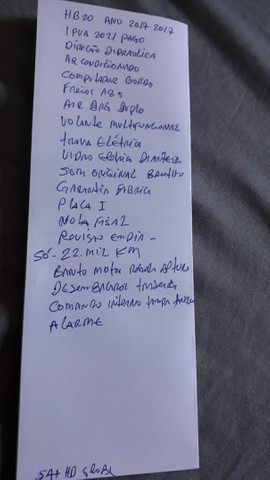 HB20 ANO 2017 2017
IPVA 2021 PAGO
DIREÇÃO HIDRAULICA
AR CONDICIONADO
COMPUTADOR BORDO
FREIOS ABS
AIR BAG DUPLO
VOLANTE MULTIFUNCIONAL
TRAVA ELÉTRICA
VIDRO ELETRICA DIANTEIRA
SOM ORIGINAL
GARANTIA FABRICA
PLACA I
NOTA FISCAL
REVISÃO EM DIA -
SÓ - 22.MIL KM
BANCO MOTOR ALTURA
DESEMBAÇADOR TRASEIRO
COMANDO INTERNO TAMPA
ALARME